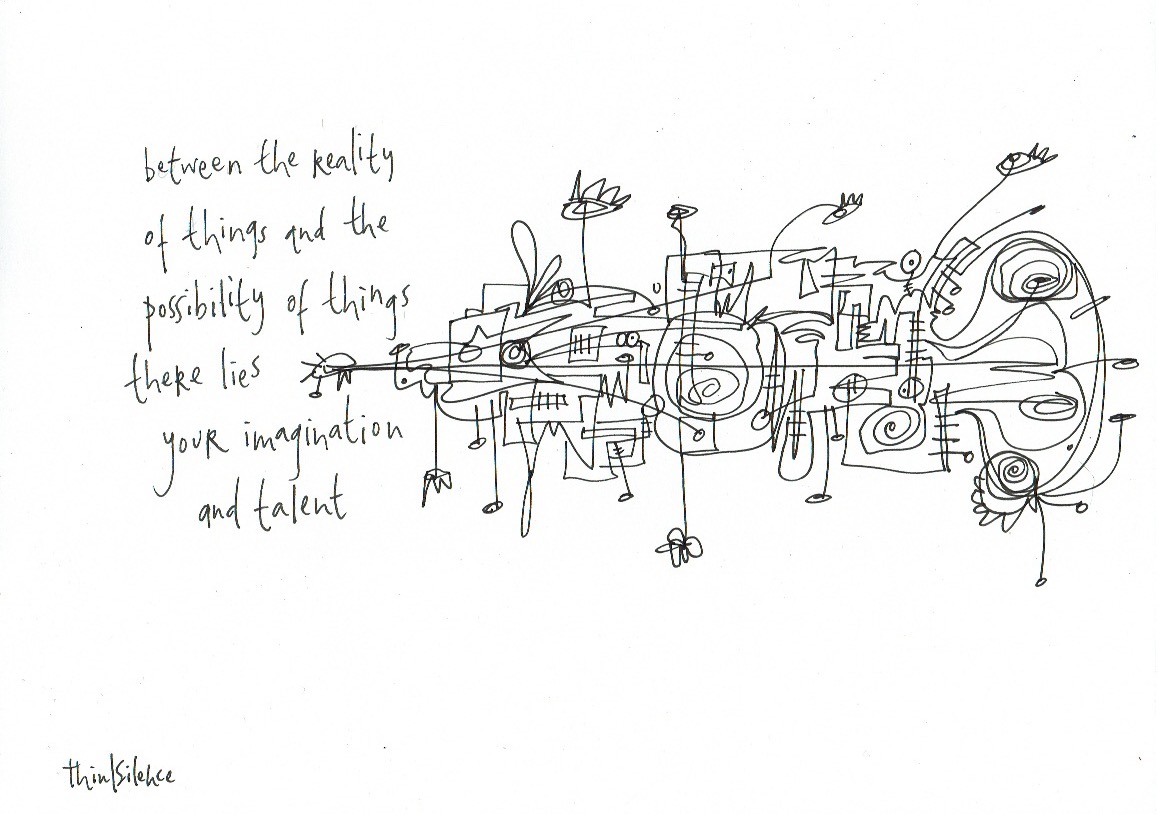 between the reality
of things and the
possibility of things
there lies
your imagination
and talent
thin|silence